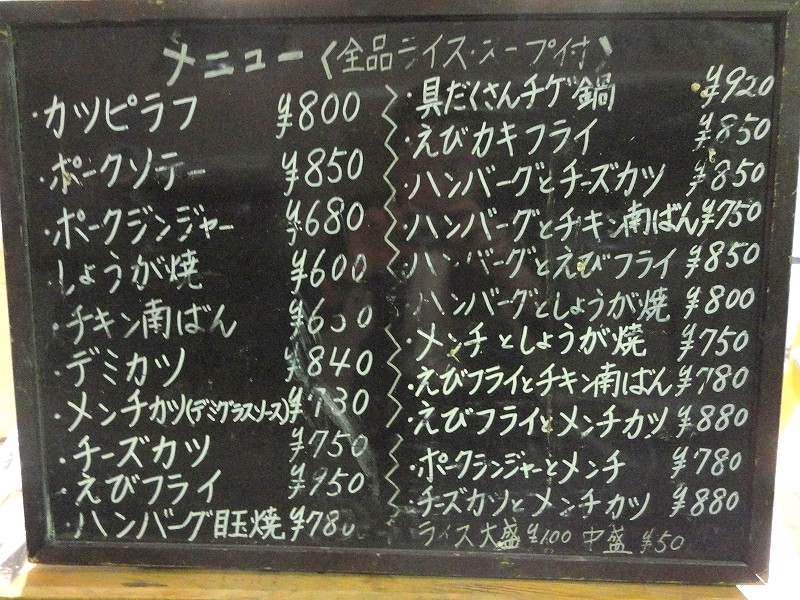 メニュー〈全品ライス・スープ付〉
・カツピラフ ¥800
・ポークソテー ¥850
・ポークジンジャー ¥680
・しょうが焼 ¥600
・チキン南ばん
・デミカツ ¥840
・メンチカツ(デミグラスソース) ¥730
・チーズカツ ¥750
・えびフライ ¥950
・ハンバーグ目玉焼 ¥780
・具だくさんチゲ鍋 ¥920
・えびカキフライ ¥850
・ハンバーグとチーズカツ ¥850
・ハンバーグとチキン南ばん ¥750
・ハンバーグとえびフライ ¥850
・ハンバーグとしょうが焼 ¥800
・メンチとしょうが焼 ¥750
・えびフライとチキン南ばん ¥780
・えびフライとメンチカツ ¥880
・ポークジンジャーとメンチ ¥780
・チーズカツとメンチカツ ¥880
ライス大盛 ¥100 中盛 ¥50